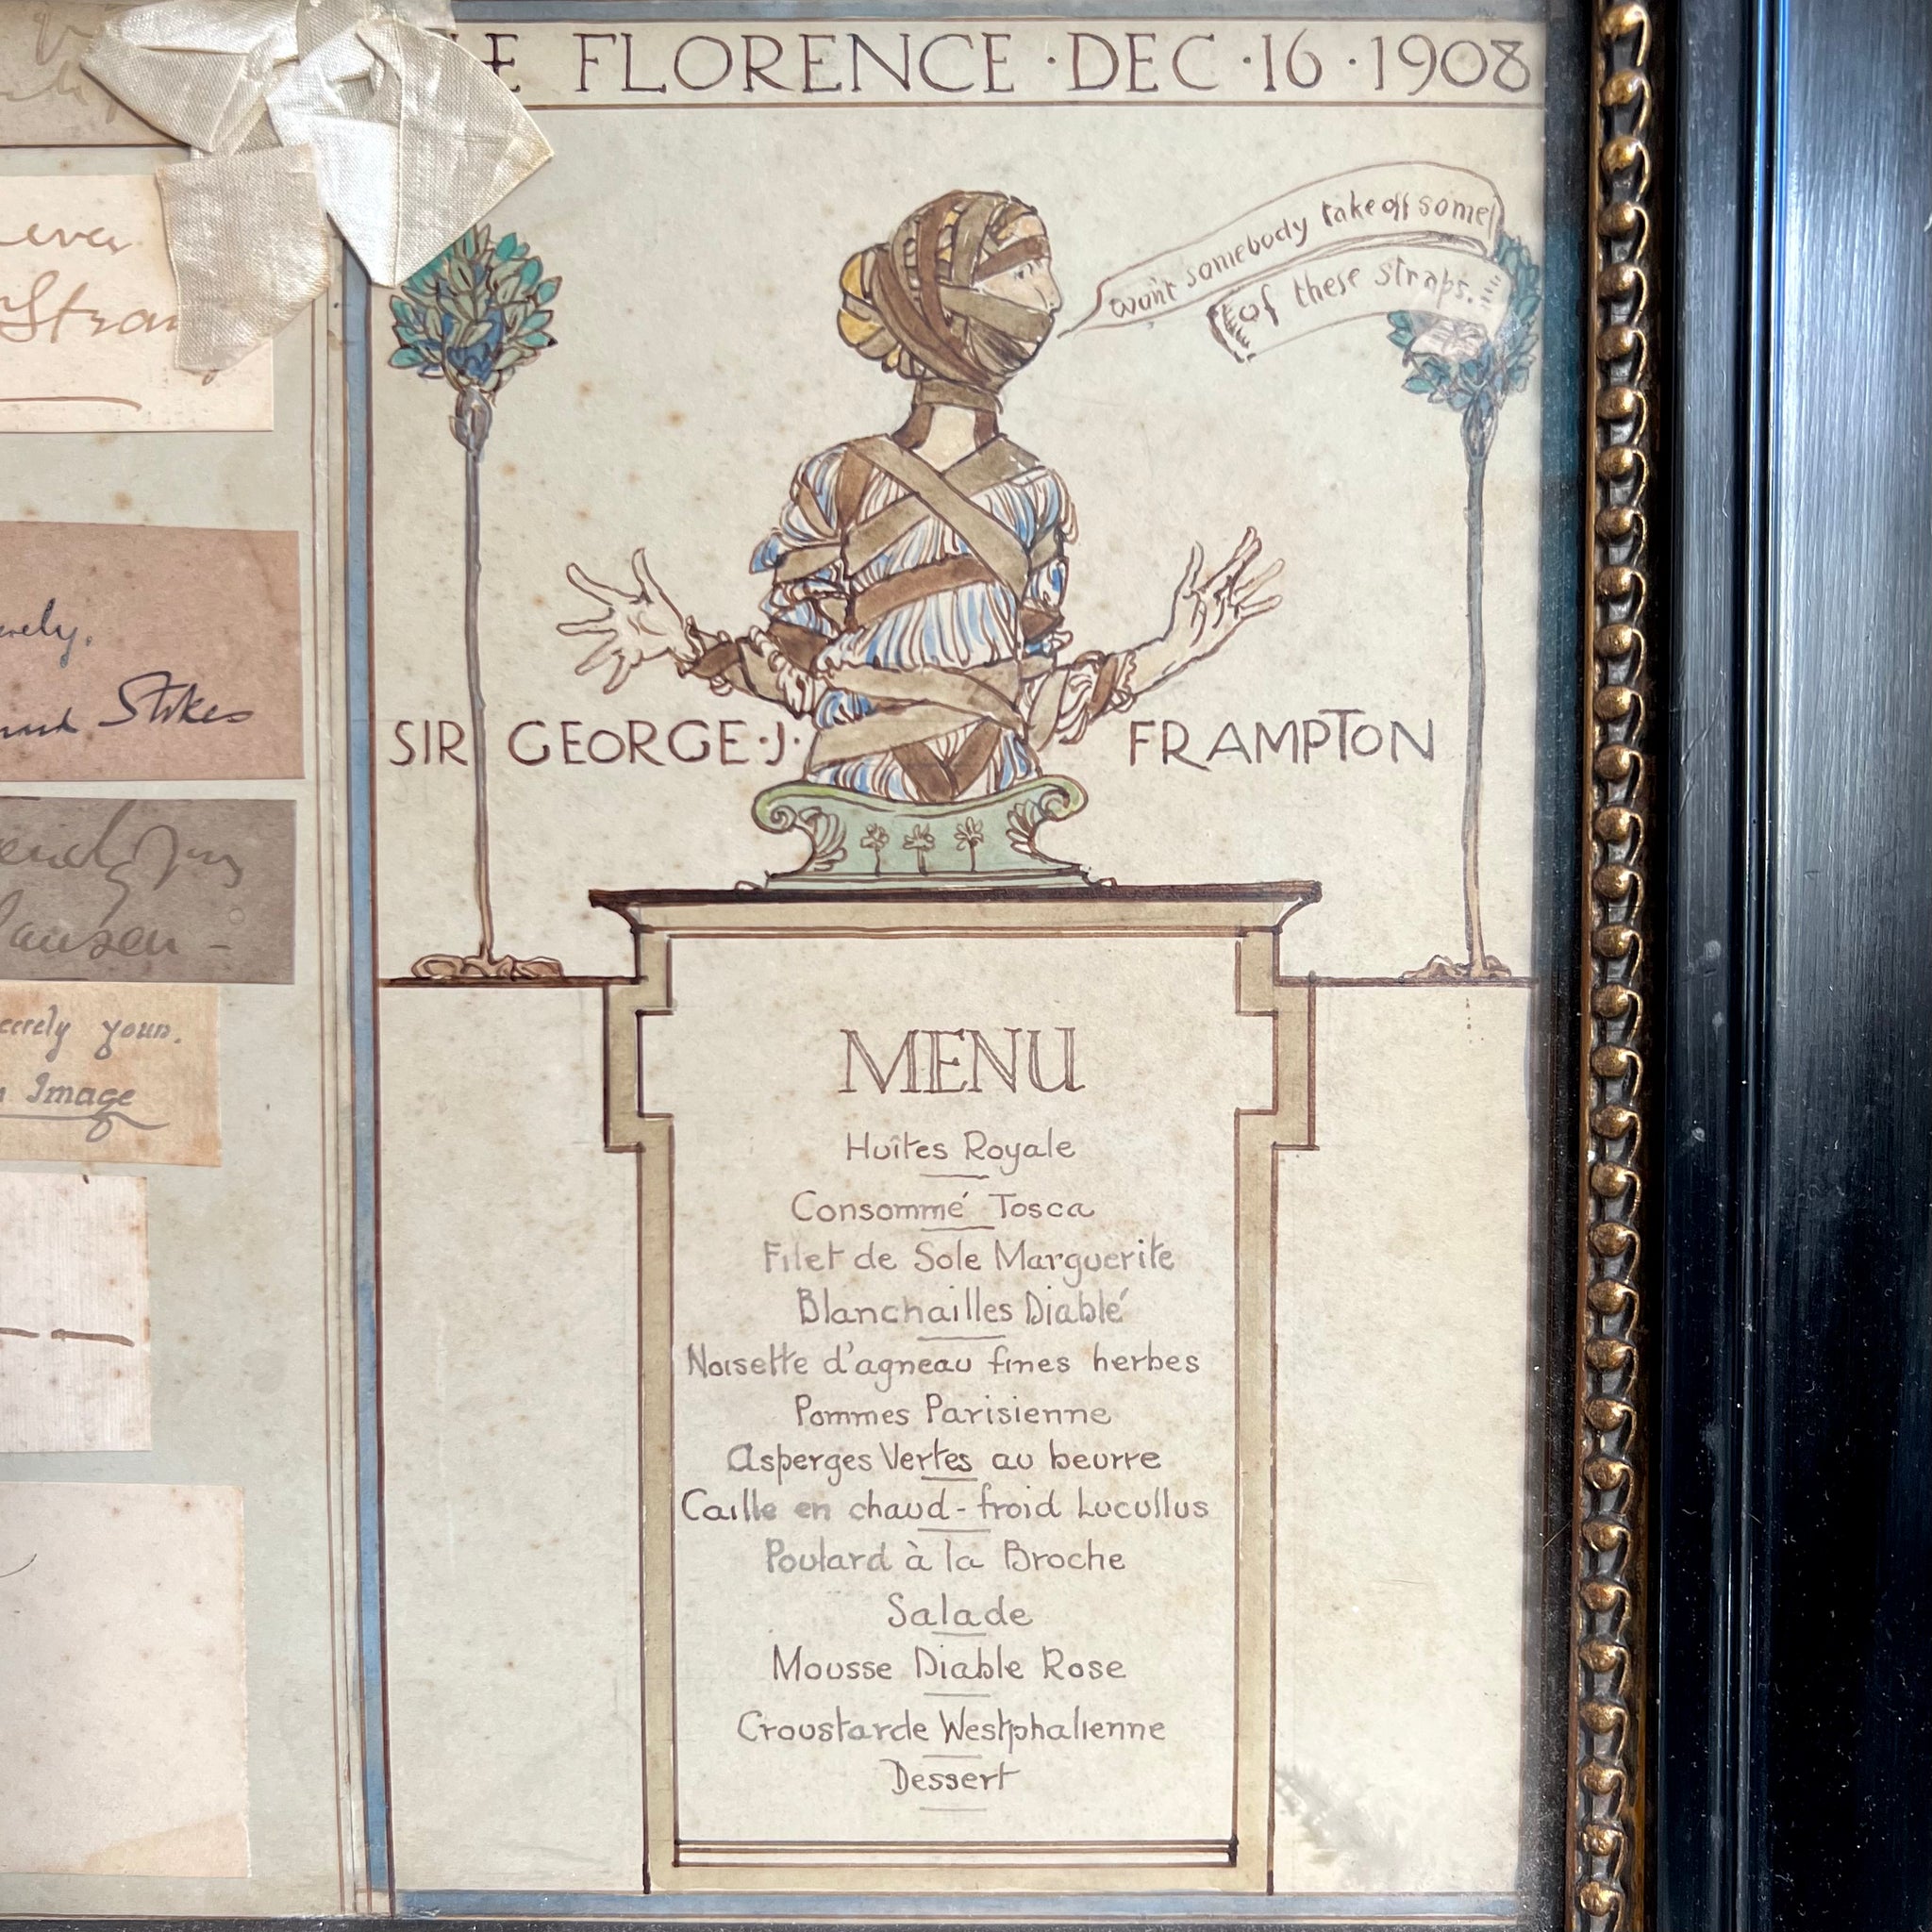 FLORENCE · DEC · 16 · 1908
wont somebody take off some
of these straps.
SIR GEORGE · J · FRAMPTON
MENU
Huîtes Royale
Consommé Tosca
Filet de Sole Marguerite
Blanchailles Diablé
Noisette d'agneau fines herbes
Pommes Parisienne
Asperges Vertes au beurre
Caille en chaud-froid Lucullus
Poulard à la Broche
Salade
Mousse Diable Rose
Croustarde Westphalienne
Dessert
Stokes
Image